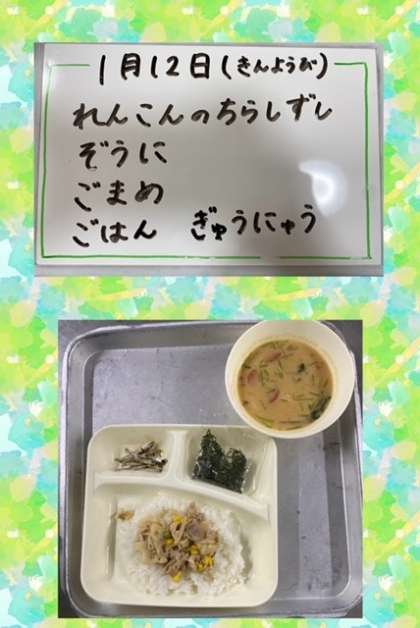 1月12日(きんようび)
れんこんのちらしずし
ぞうに
ごまめ
ごはん ぎゅうにゅう